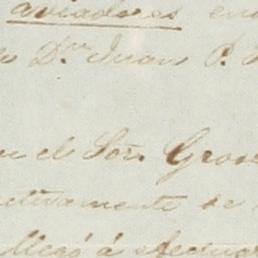 aviadores en
Dn. Juan P.
el Sor. Gros
ctivamente se
llegó á efectua